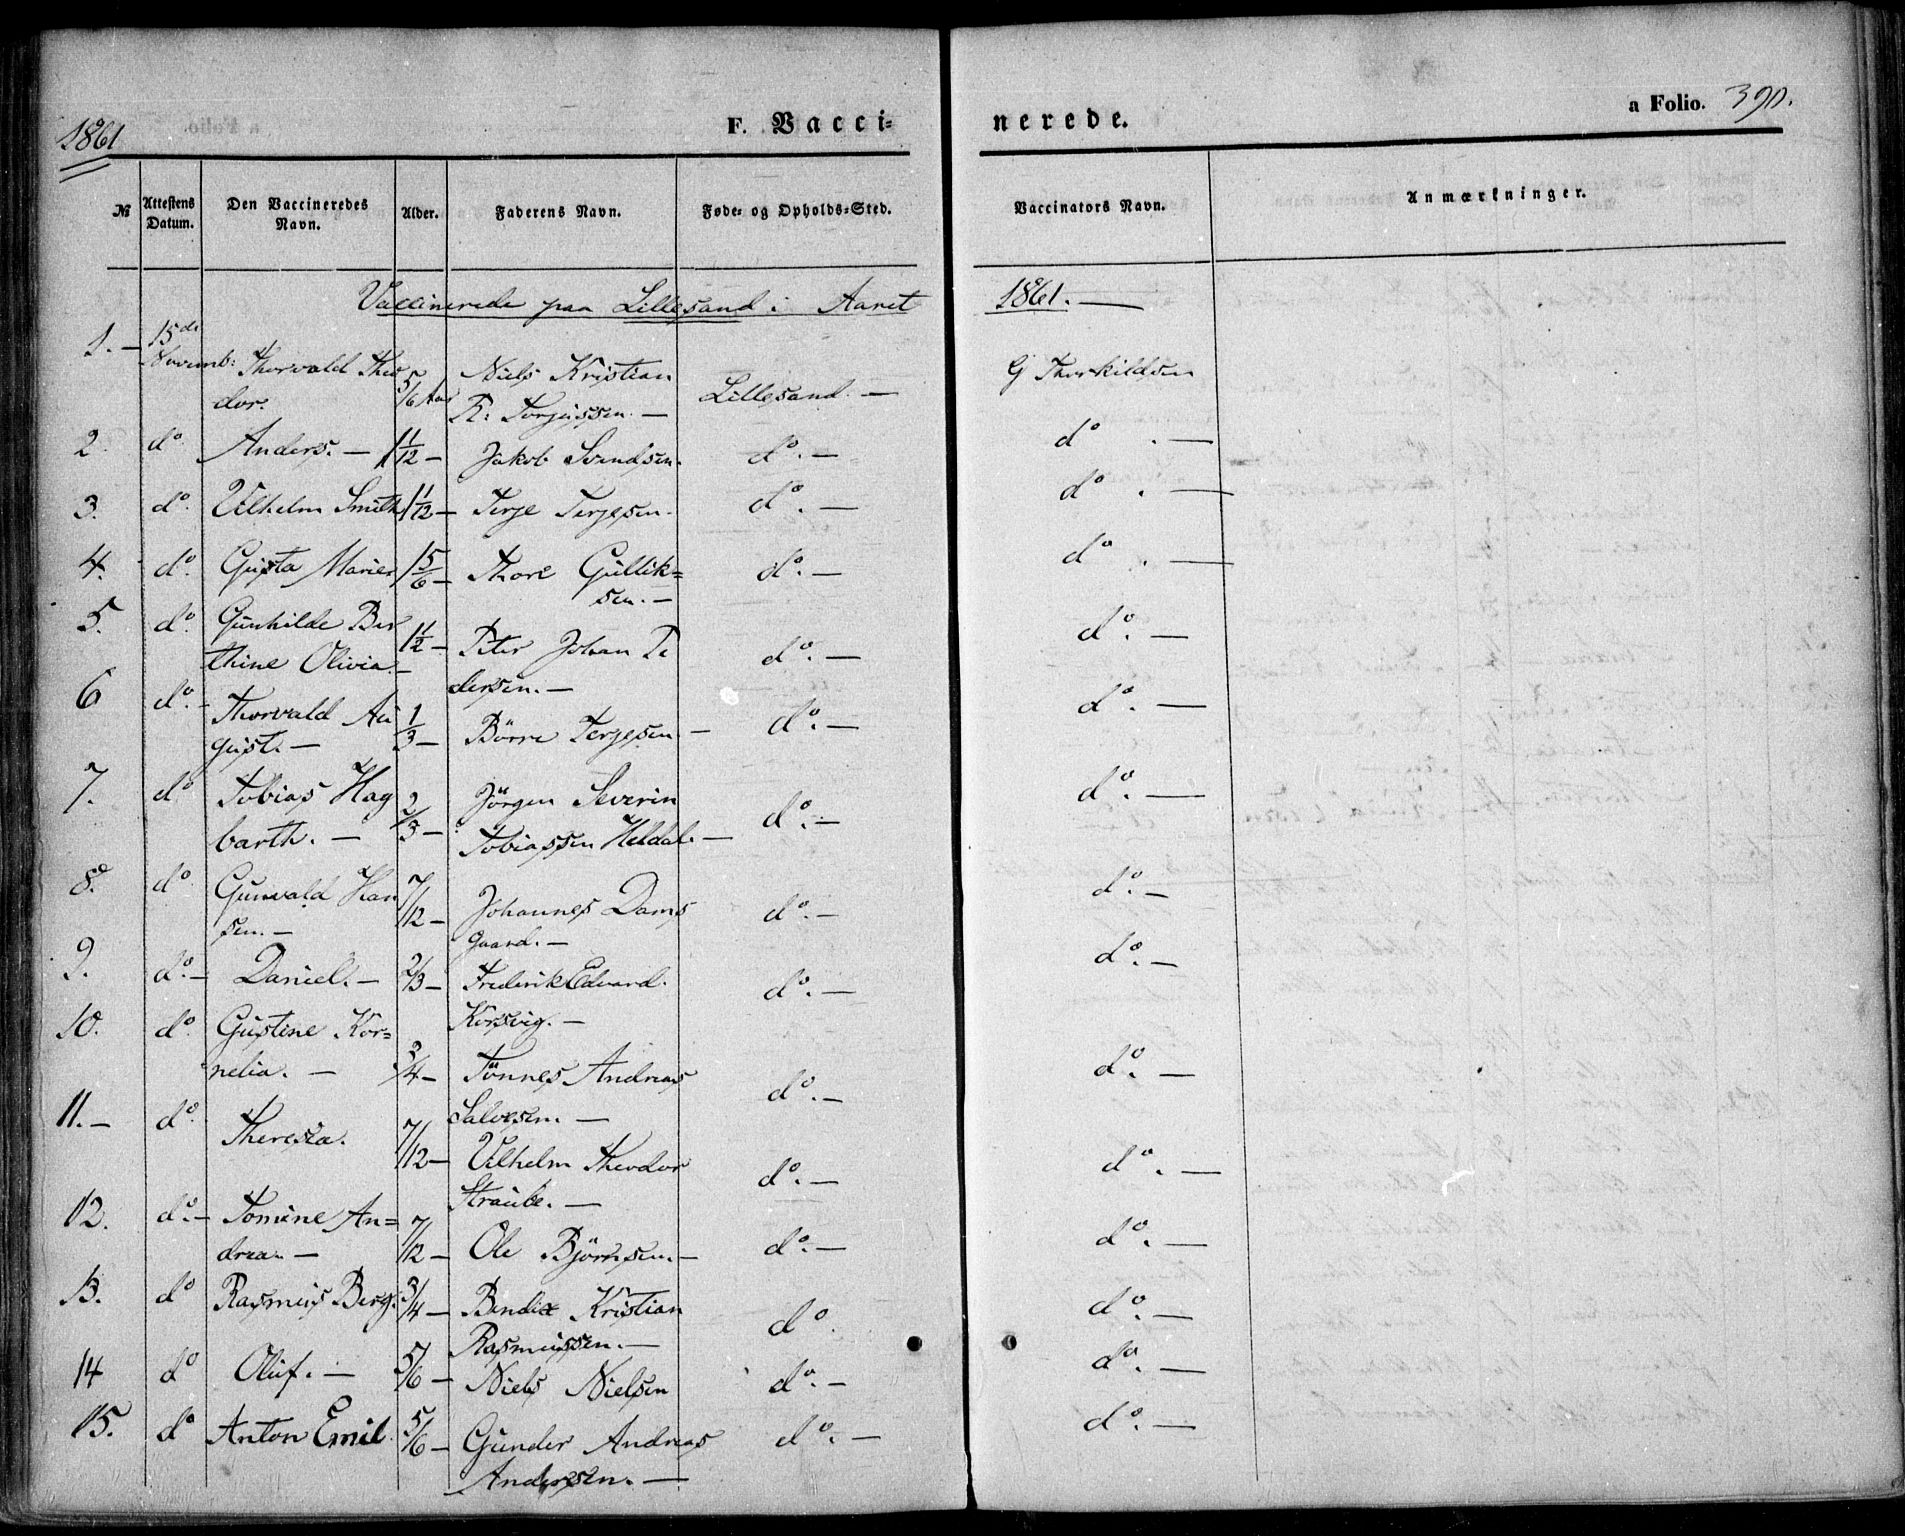 1861
F. Vacci-
nerede.
a Folio. 390.
№ Attestens Datum. Den Vaccineredes Navn. Alder. Faderens Navn. Føde- og Opholds-Sted. Vaccinators Navn. Anmærkninger.
Vaccinerede paa Lillesand i Aaret 1861. —
1. — 15de
Novemb: Thorvald Theo 5/6 Aar Niels Kristian Lillesand. — G Thorkildsen
dor. R: Torjussen. —
2. do Anders. — 1 1/12 — Jakob Svendsen. do. — do. —
3. do. Vilhelm Smith 1 1/12 — Terje Terjesen. do. — do. —
4. do. Gusta Marie 1 5/6 — Thore Gullik= do. — do. —
sen. —
5. do. Gunhilde Ber 1 1/2 — Peter Johan Pe do. — do. —
thine Olivia — dersen. —
6 do. — Thorvald Au 1/3 — Börre Terjesen. — do. — do. —
gust. —
7. do Tobias Hag 2/3 — Jörgen Severin do. — do. —
barth. — Tobiassen Heldal. —
8. do. Gunvald Han 7/12 — Johannes Dams do. — do. —
sen. — gaard. —
9. do. — Daniel. — 2/3 — Frederik Edvard. do. — do. —
Korsvig. —
10. do. Gustine Kor= 3/4 — Tönnes Andreas do. — do. —
nelia. — Salvesen. —
11. — do. Theresia. 7/12 — Vilhelm Theodor do. — do. —
Straube. —
12. do. — Tomine An= 7/12 — Ole Björnsen. — do. — do. —
drea. —
13. do Rasmus Berg. 3/4 — Bendix Kristian do. do. —
Rasmussen. —
14 do Oluf. — 5/6 — Niels Nielsen do. — do. —
15. do Anton Emil 5/6 — Gunder Andreas do. — do. —
Andersen. —